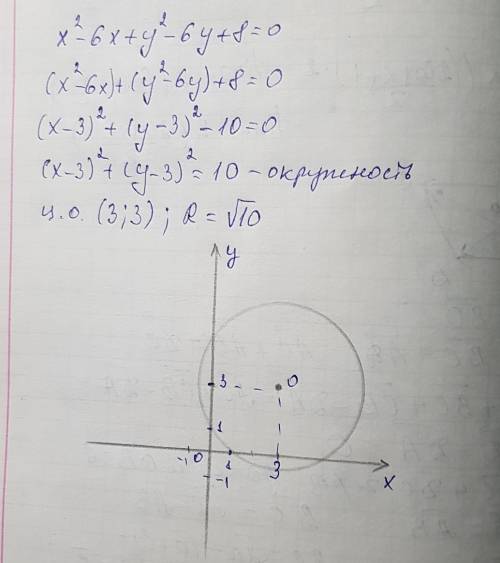 x²-6x+y²-6y+8=0
(x²-6x)+(y²-6y)+8=0
(x-3)²+(y-3)²-10=0
(x-3)²+(y-3)²=10 - окружность
ц.о. (3;3); R=√10
y
3 0
1
-1 0 1 3
-1 x